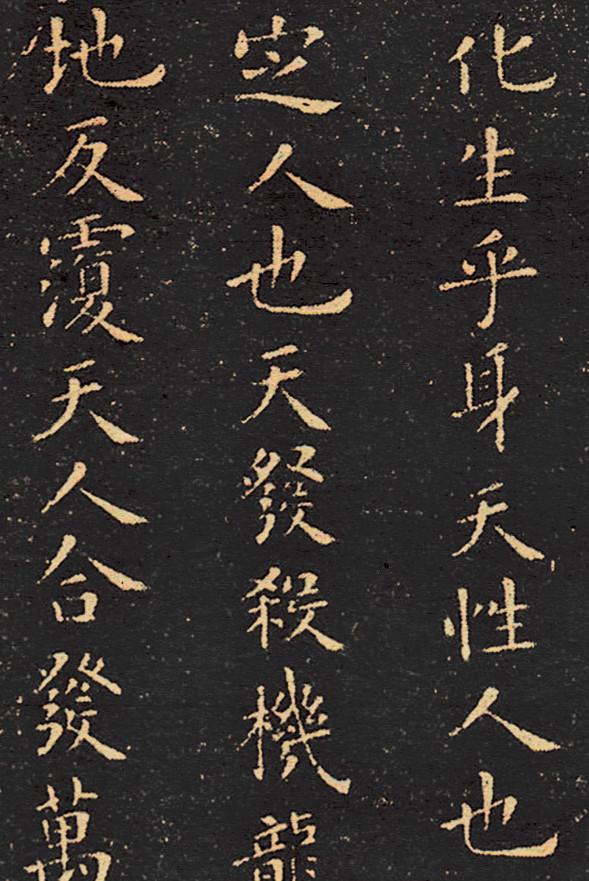 化生乎身天性人也
定人也天發殺機龍
地反覆天人合發萬